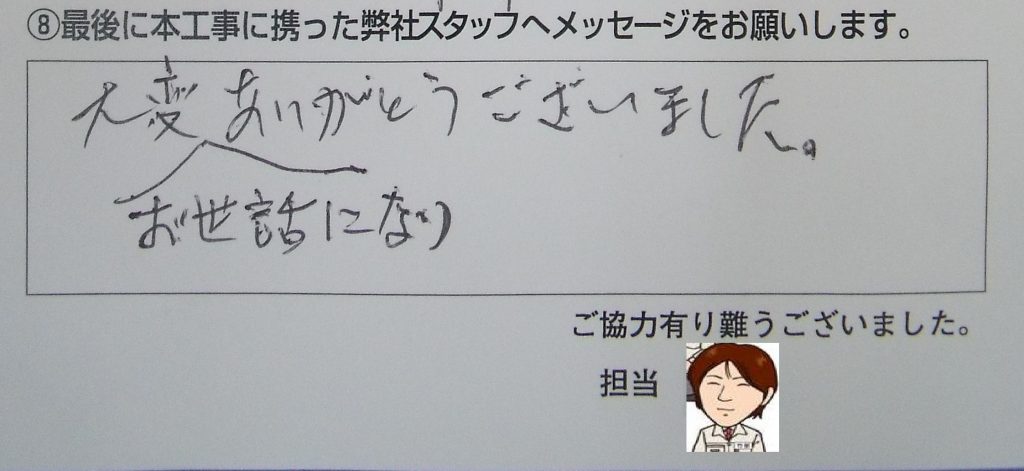 ⑧最後に本工事に携った弊社スタッフへメッセージをお願いします。
大変ありがとうございました。
お世話になり
ご協力有り難うございました。
担当